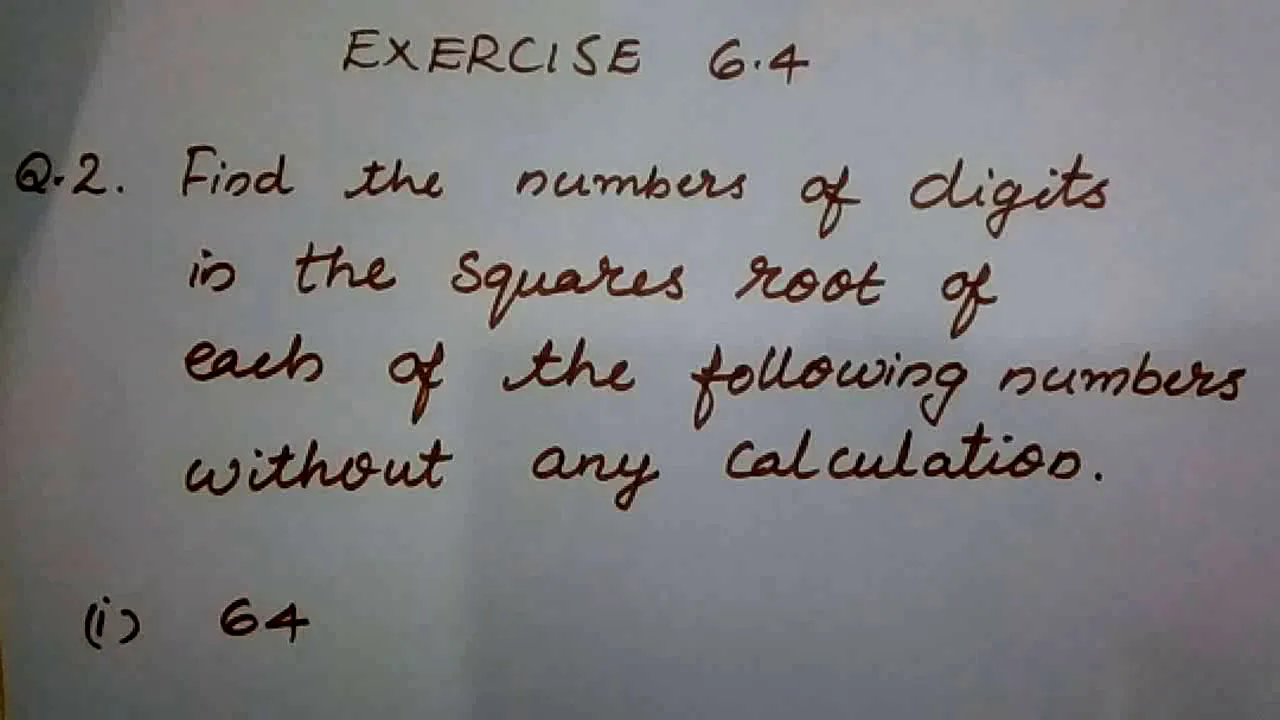 EXERCISE 6.4
Q.2. Find the numbers of digits
in the squares root of
each of the following numbers
without any calculation.
(i) 64